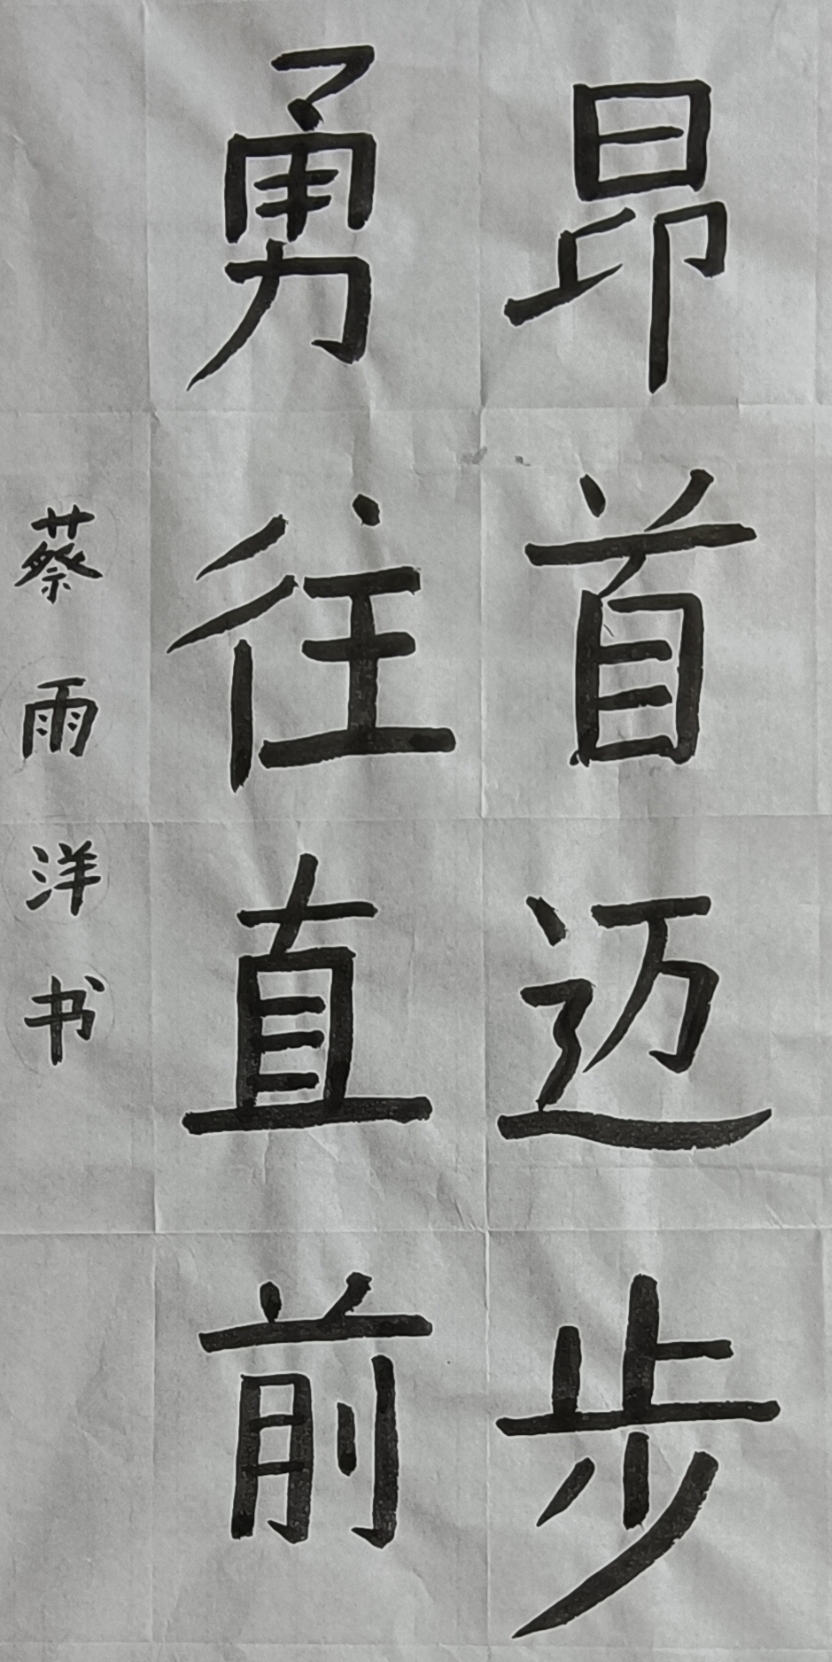 昂首迈步
勇往直前
蔡雨洋书